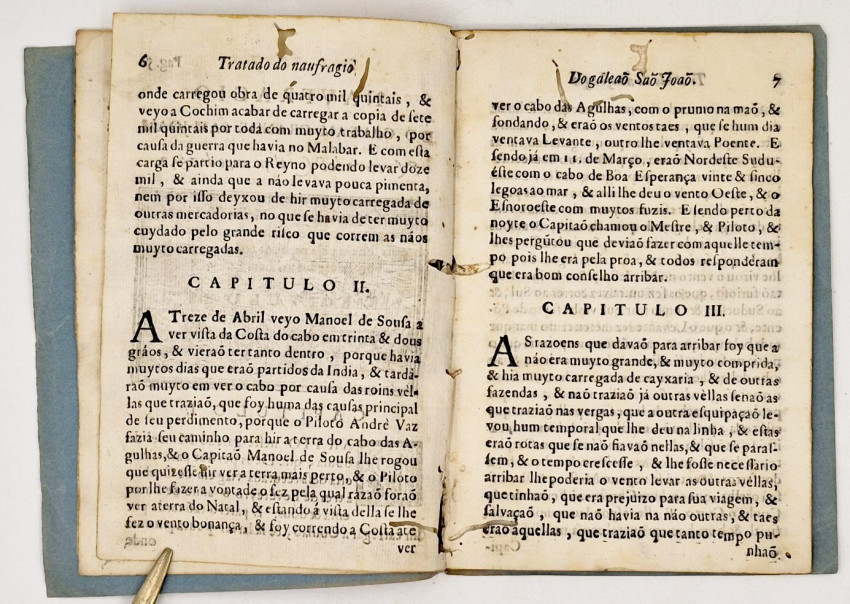 6 Tratado do naufragio
onde carregou obra de quatro mil quintais, &
veyo a Cochim acabar de carregar a copia de sete
mil quintais por toda com muyto trabalho, por
causa da guerra que havia no Malabar. E com esta
carga se partio para o Reyno podendo levar doze
mil, & ainda que a não levava pouca pimenta,
nem por isso deyxou de hir muyto carregada de
outras mercadorias, no que se havia de ter muyto
cuydado pelo grande risco que correm as náos
muyto carregadas.
CAPITULO II.
A Treze de Abril veyo Manoel de Sousa a
ver vista da Costa do cabo em trinta & dous
gráos, & vieraõ ter tanto dentro, porque havia
muytos dias que eraõ partidos da India, & tardá-
raõ muyto em ver o cabo por causa das roins vél-
las que traziaõ, que foy huma das causas principal
de seu perdimento, porque o Piloto Andrè Vaz
fazia seu caminho para hir a terra do cabo das A-
gulhas, & o Capitaõ Manoel de Sousa lhe rogou
que quizesse hir ver a terra mais perto, & o Piloto
por lhe fazer a vontade o fez pela qual razaõ foraõ
ver a terra do Natal, & estando á vista della se lhe
fez o vento bonança, & foy correndo a Costa ate
ver
Do galeaõ Saõ Joaõ. 7
ver o cabo das Agulhas, com o prumo na maõ, &
sondando, & eraõ os ventos taes, que se hum dia
ventava Levante, outro lhe ventava Poente. E
sendo já em 11. de Março, eraõ Nordeste Sudu-
éste com o cabo de Boa Esperança vinte & sinco
legoas ao mar, & alli lhe deu o vento Oeste, & o
Esnoroeste com muytos fuzis. E sendo perto da
noyte o Capitaõ chamou o Mestre, & Piloto, &
lhes pergũtou que deviaõ fazer com aquelle tem-
po pois lhe era pela proa, & todos responderam
que era bom conselho arribar.
CAPITULO III.
AS razoens que davaõ para arribar foy que a
náo era muyto grande, & muyto comprida,
& hia muyto carregada de cayxaria, & de outras
fazendas, & naõ traziaõ já outras vèllas senaõ as
que traziaõ nas vergas, que a outra esquipaçaõ le-
vou hum temporal que lhe deu na linha, & estas
eraõ rotas que se naõ fiavaõ nellas, & que se paras-
sem, & o tempo crescesse, & lhe fosse necessario
arribar lhe poderia o vento levar as outras véllas,
que tinhaõ, que era prejuizo para sua viagem, &
salvaçaõ, que naõ havia na náo outras, & taes
eraõ aquellas, que traziaõ que tanto tempo pu-
nhaõ